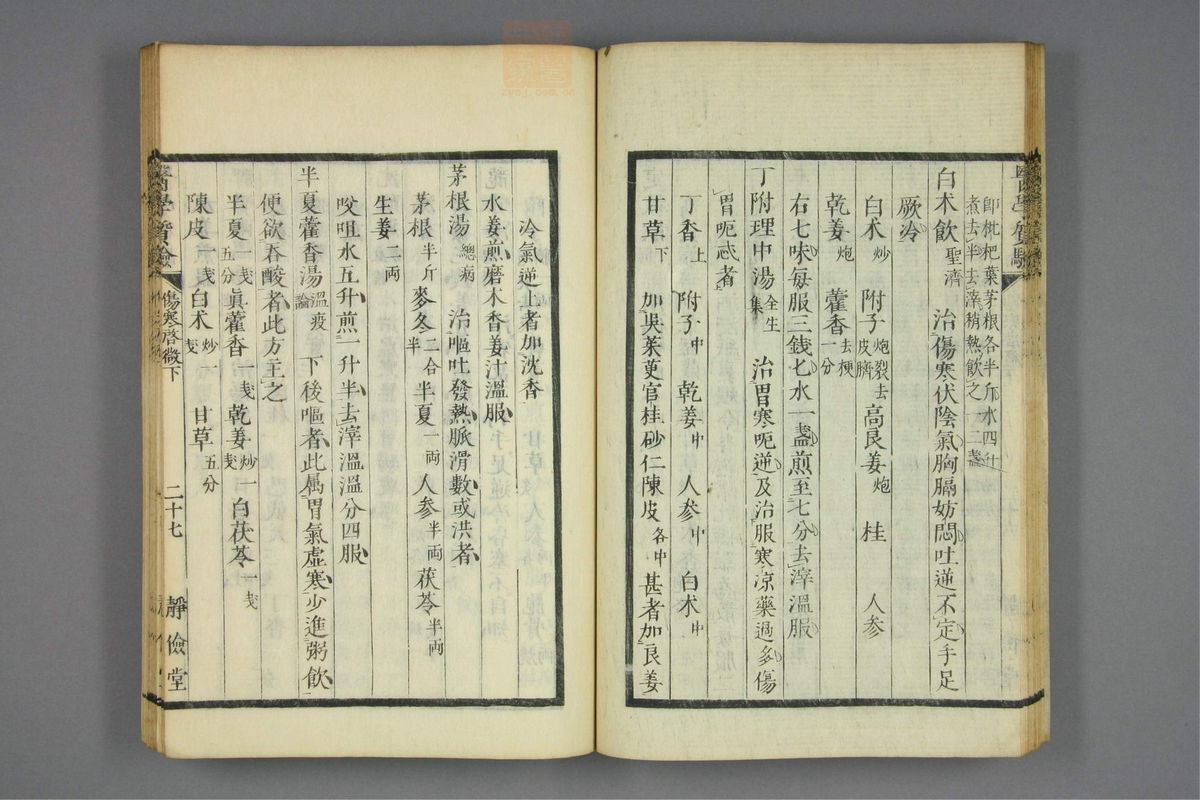 即枇杷葉茅根各半斤水四升
煮去半去滓稍熱飲之一二盞
白术飲聖濟 治傷寒伏陰氣胸膈妨悶吐逆不定手足
厥冷
白术炒 附子炮裂去皮臍 高良姜炮 桂 人參
乾姜炮 藿香去梗一分
右七味每服三錢匕水一盞煎至七分去滓溫服
丁附理中湯全生集 治胃寒呃逆及治服寒凉藥過多傷
胃呃忒者
丁香上 附子中 乾姜中 人參中 白术中
甘草下 加吳茱萸官桂砂仁陳皮各中 甚者加良姜
冷氣逆上者加沈香
水姜煎磨木香姜汁溫服
茅根湯總病 治嘔吐發熱脈滑數或洪者
茅根半斤 麥冬二合半 半夏一両 人參半両 茯苓半両
生姜二両
㕮咀水五升煎一升半去滓溫溫分四服
半夏藿香湯溫疫論 下後嘔者此属胃氣虛寒少進粥飲
便欲吞酸者此方主之
半夏一戔五分 眞藿香一戔 乾姜炒一戔 白茯苓一戔
陳皮一戔 白术炒一戔 甘草五分
傷寒啓微下 二十七 靜儉堂